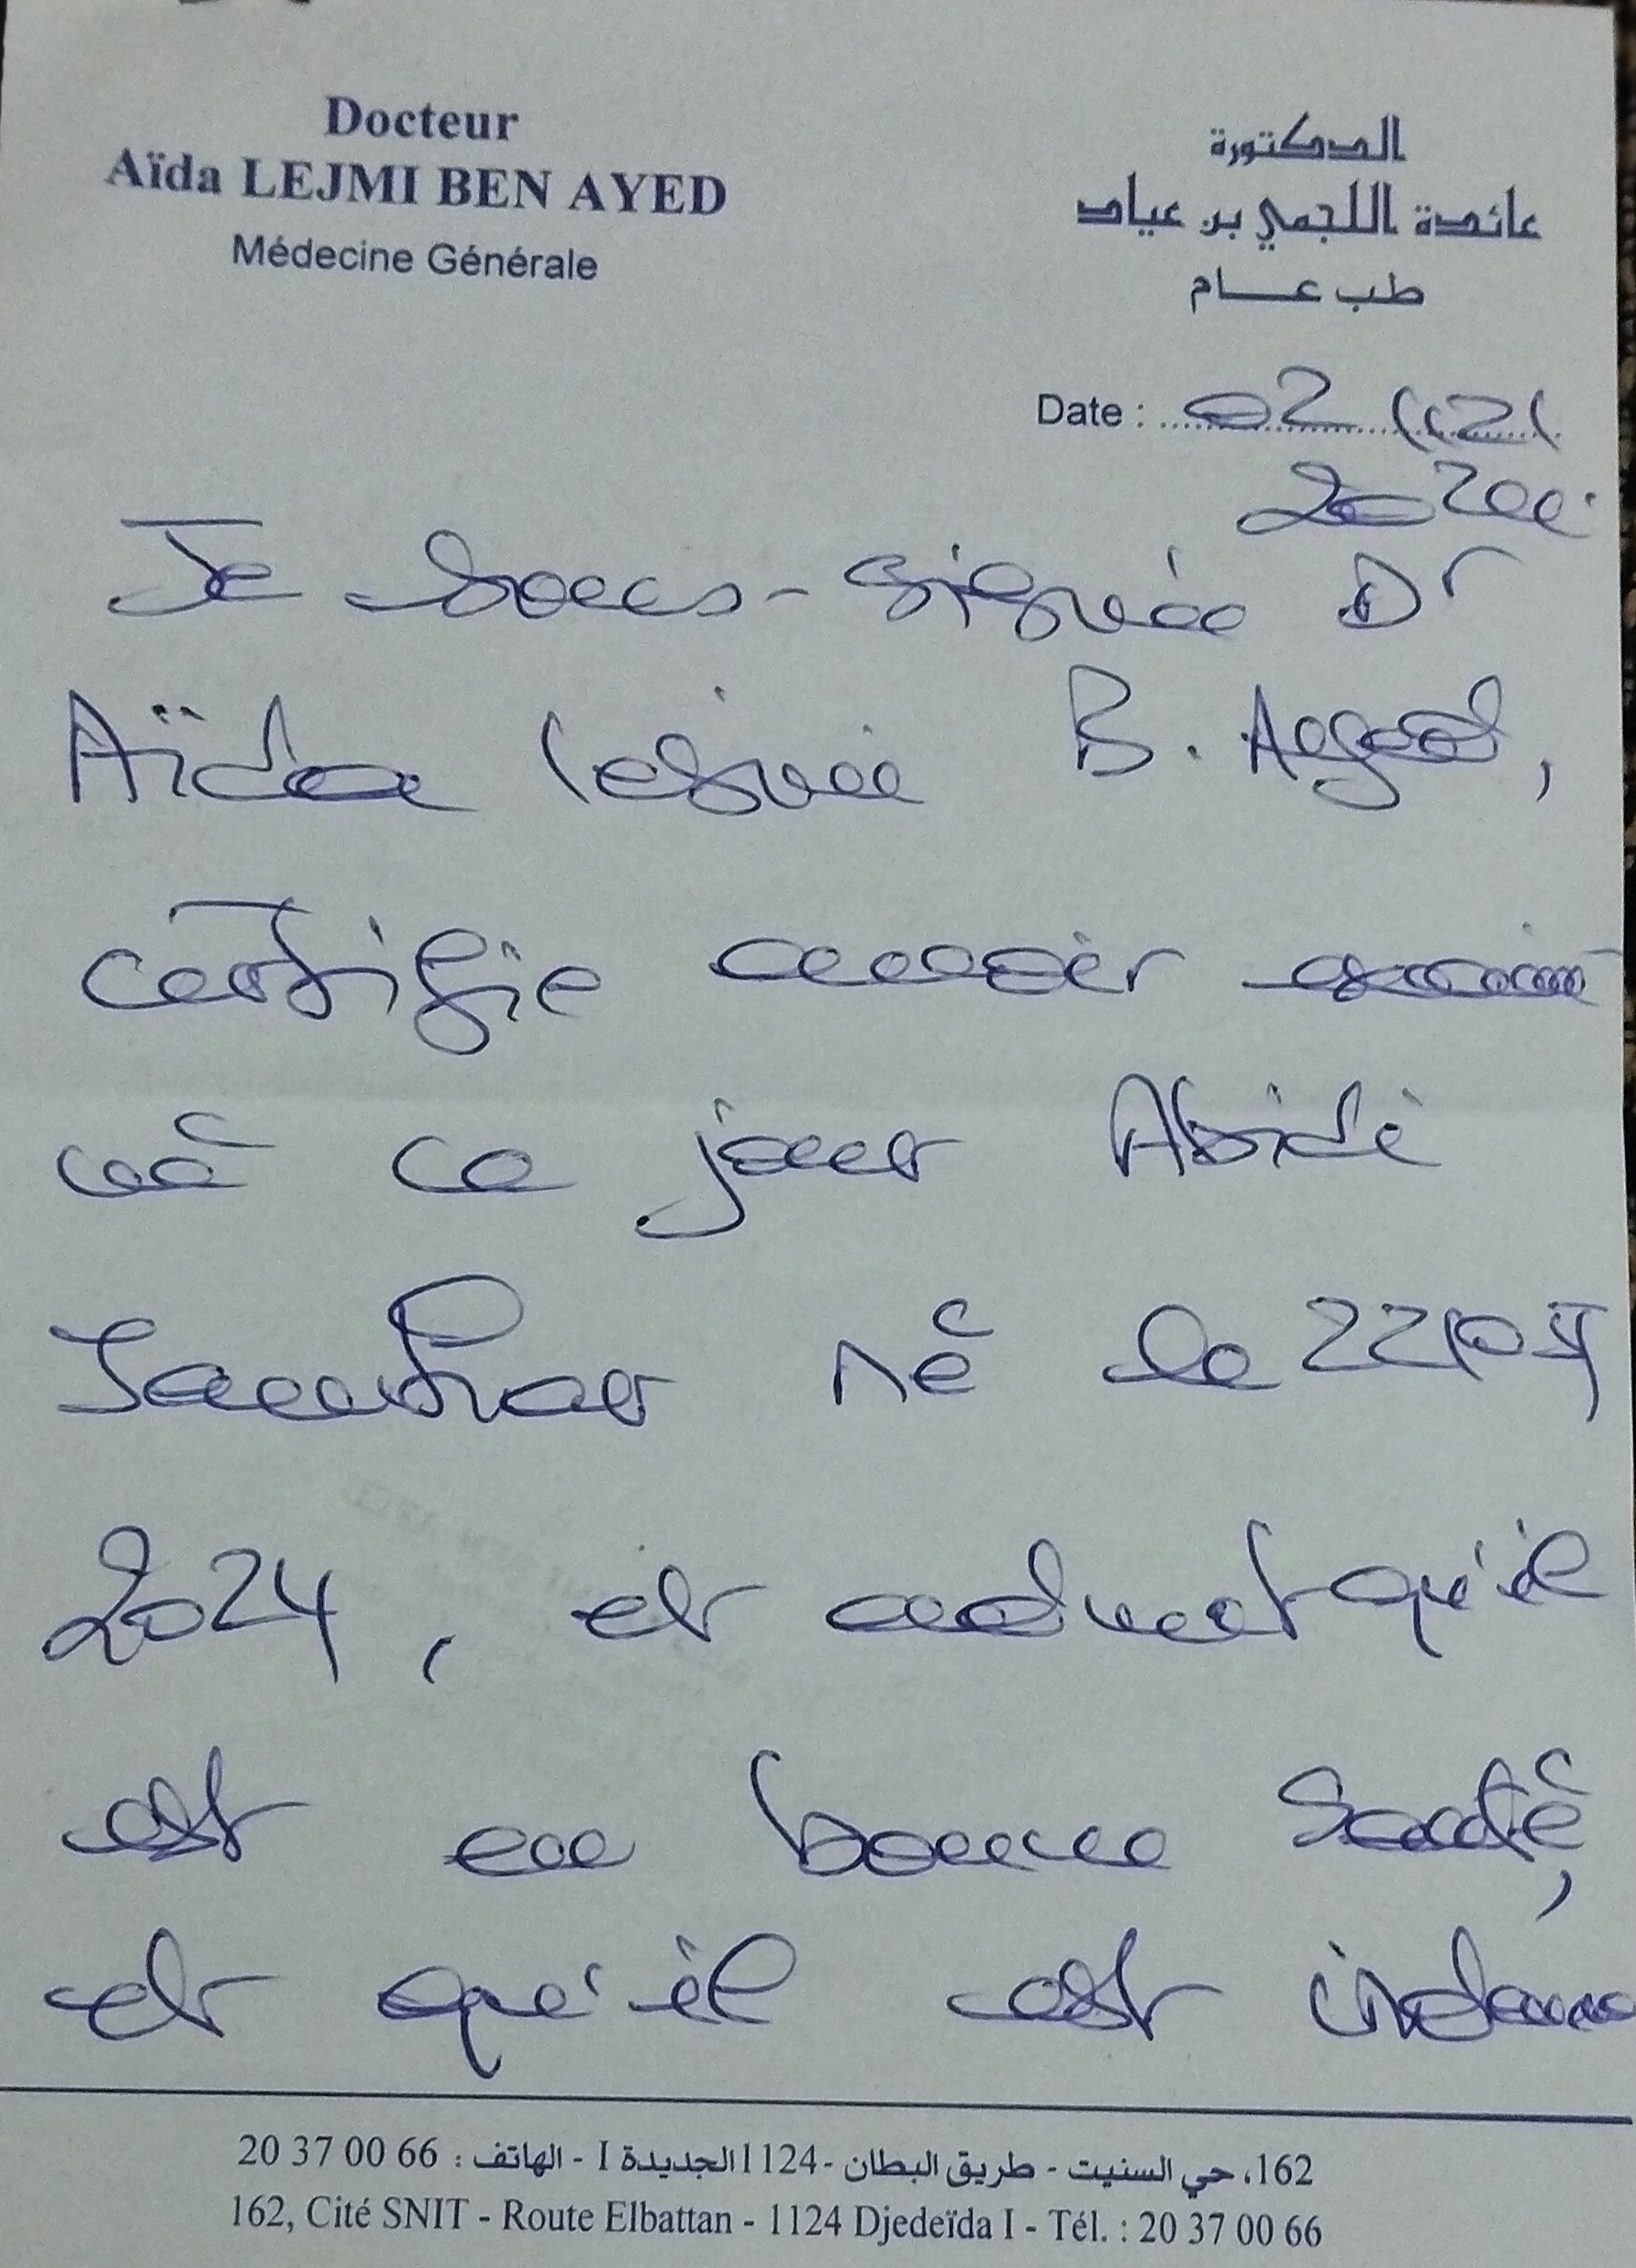 Docteur
Aïda LEJMI BEN AYED
Médecine Générale
الدكتورة
عائدة اللجمي بن عياد
طب عــام
Date : 02
Je sous-signée Dr
Aïda Lejmi B. Ayed,
certifie avoir examiné
ce jour Abidi
né le 22/05
2024, et admet qu'il
est en bonne santé,
et qu'il est indemne
162، حي السنيت - طريق البطان -1124 الجديدة I - الهاتف : 66 00 37 20
162, Cité SNIT - Route Elbattan - 1124 Djedeïda I - Tél. : 20 37 00 66